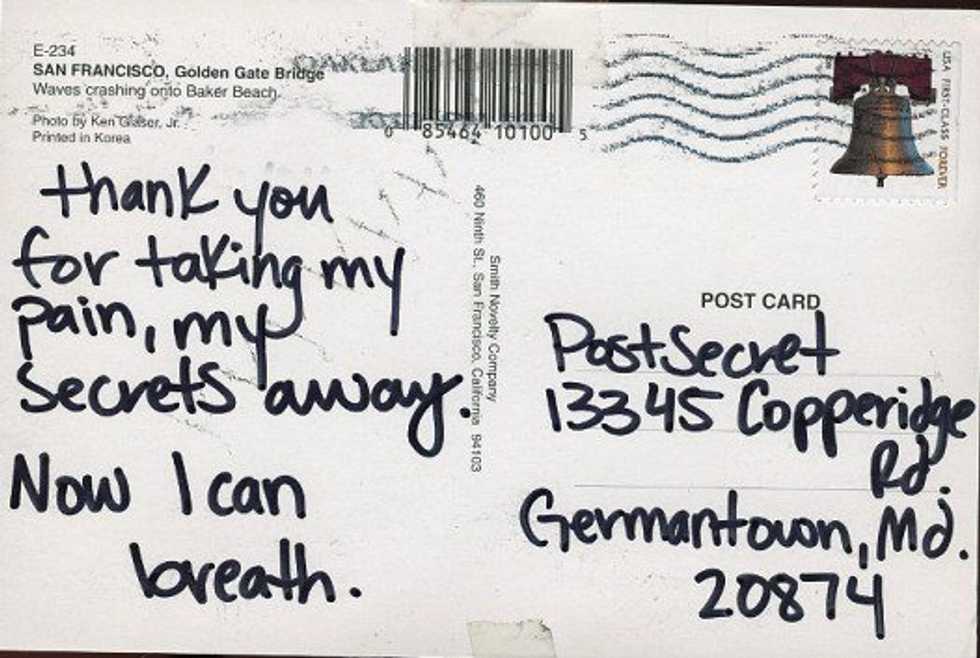 E-234
SAN FRANCISCO, Golden Gate Bridge
Waves crashing onto Baker Beach
Photo by Ken Glaser, Jr.
Printed in Korea
OAKLAN
0 85464 10100 5
USA FIRST-CLASS FOREVER
thank you
for taking my
pain, my
secrets away.
Now I can
breath.
Smith Novelty Company
460 Ninth St., San Francisco, California 94103
POST CARD
PostSecret
13345 Copperidge
Rd.
Germantown, Md.
20874